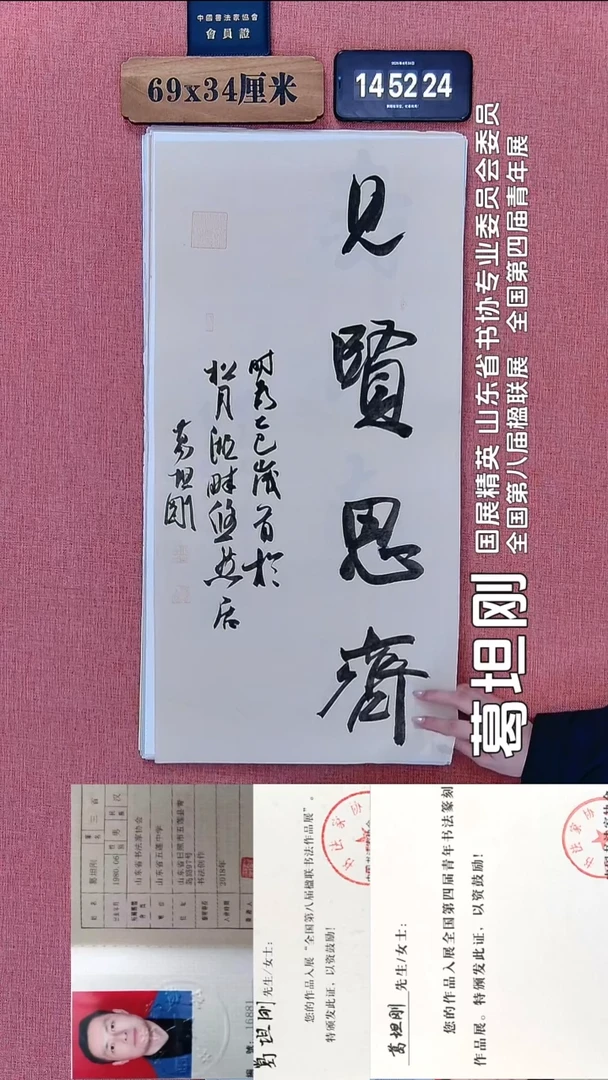 中國書法家協會
會員證
69x34厘米
14 52 24
見賢思齊
时於乙巳歲首於
松月湖畔悠然居
葛坦剛
葛坦刚
国展精英 山东省书协专业委员会委员
全国第八届楹联展 全国第四届青年展
葛坦刚
男
汉
1980.06
山东省书法家协会
山东省五莲中学
书法创作
2018年
編號：16881
葛坦刚 先生/女士：
您的作品入展“全国第八届楹联书法作品展”。
特颁发此证，以资鼓励！
葛坦刚 先生/女士：
您的作品入展全国第四届青年书法篆刻
作品展。特颁发此证，以资鼓励！